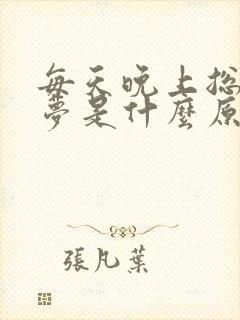 每天晚上總
夢是什麼原
張凡葉